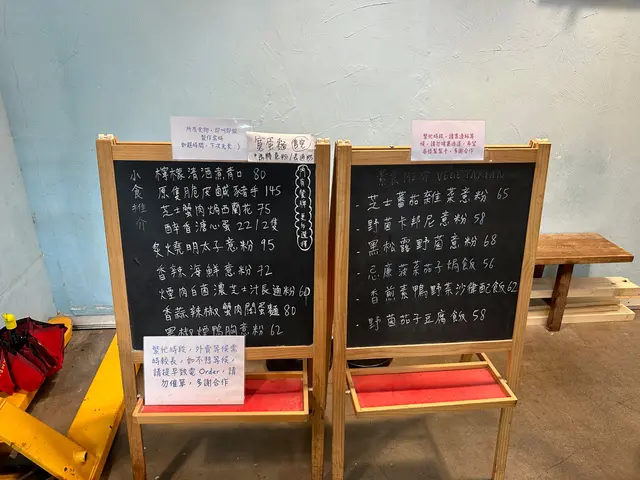 所有食物，即叫即做
製作需時
如趕時間，下次先食:)
窩蛋麵 售完
*長通粉/意粉
小食推介
檸檬清酒煮青口 80
原隻脆皮鹹豬手 145
芝士蟹肉焗西蘭花 75
醉香溏心蛋 22/2隻
炙燒明太子意粉 95
香辣海鮮意粉 72
煙肉白菌濃芝士汁長通粉 60
香蒜辣椒蟹肉闊蛋麵 80
黑椒煙鴨胸意粉 62
繁忙時段，外賣等候需
時較長，如不想等候，
請提早致電 Order，請
勿催單，多謝合作
繁忙時段，請耐心等
候，請勿催單，多謝合作
VEGETARIAN
- 芝士蕃茄雜菜意粉 65
- 野菌卡邦尼意粉 58
- 黑松露野菌意粉 68
- 忌廉菠菜茄子焗飯 56
- 香煎素鴨野菜沙律配飯 62
- 野菌茄子豆腐飯 58